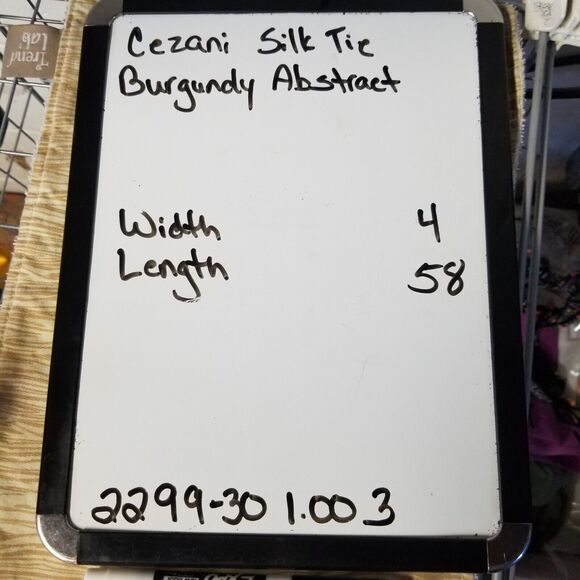 Cezani Silk Tie
Burgundy Abstract
Width 4
Length 58
2299-30 1.00 3
Trend Lab